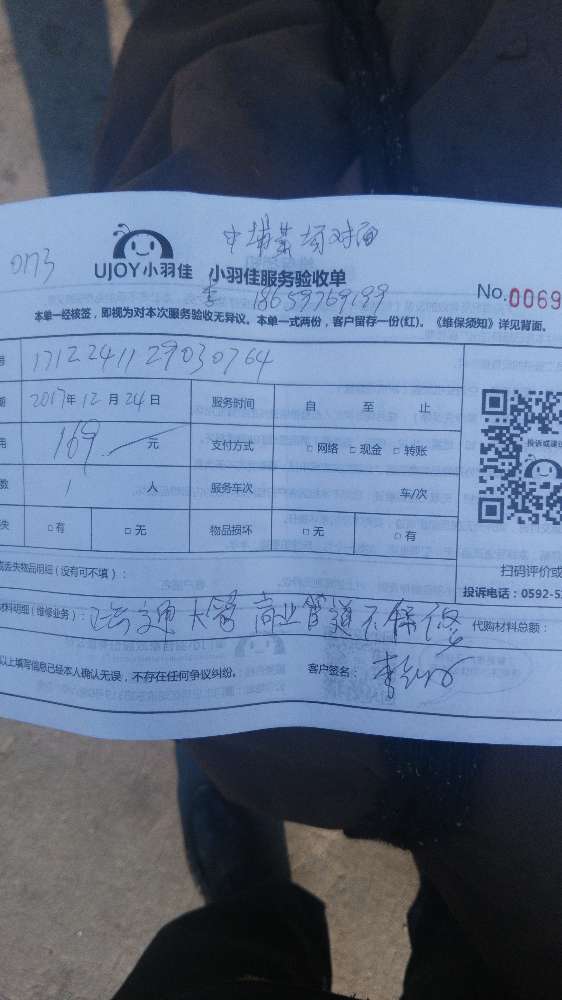 中埔菜场对面
0173
UJOY小羽佳 小羽佳服务验收单
李 18659769199
No.0069
本单一经核签，即视为对本次服务验收无异议。本单一式两份，客户留存一份(红)。《维保须知》详见背面。
1712241129030764
2017年12月24日 服务时间 自 至 止
用 169 元 支付方式 □网络 □现金 □转账
数 1 人 服务车次 车/次
失 □有 □无 物品损坏 □无 □有
投诉或建议
扫码评价或
丢失物品明细（没有可不填）：
投诉电话：0592-5
材料明细（维修业务）： 疏通 大管 商业管道不保修 代购材料总额：
以上填写信息已经本人确认无误，不存在任何争议纠纷。 客户签名：